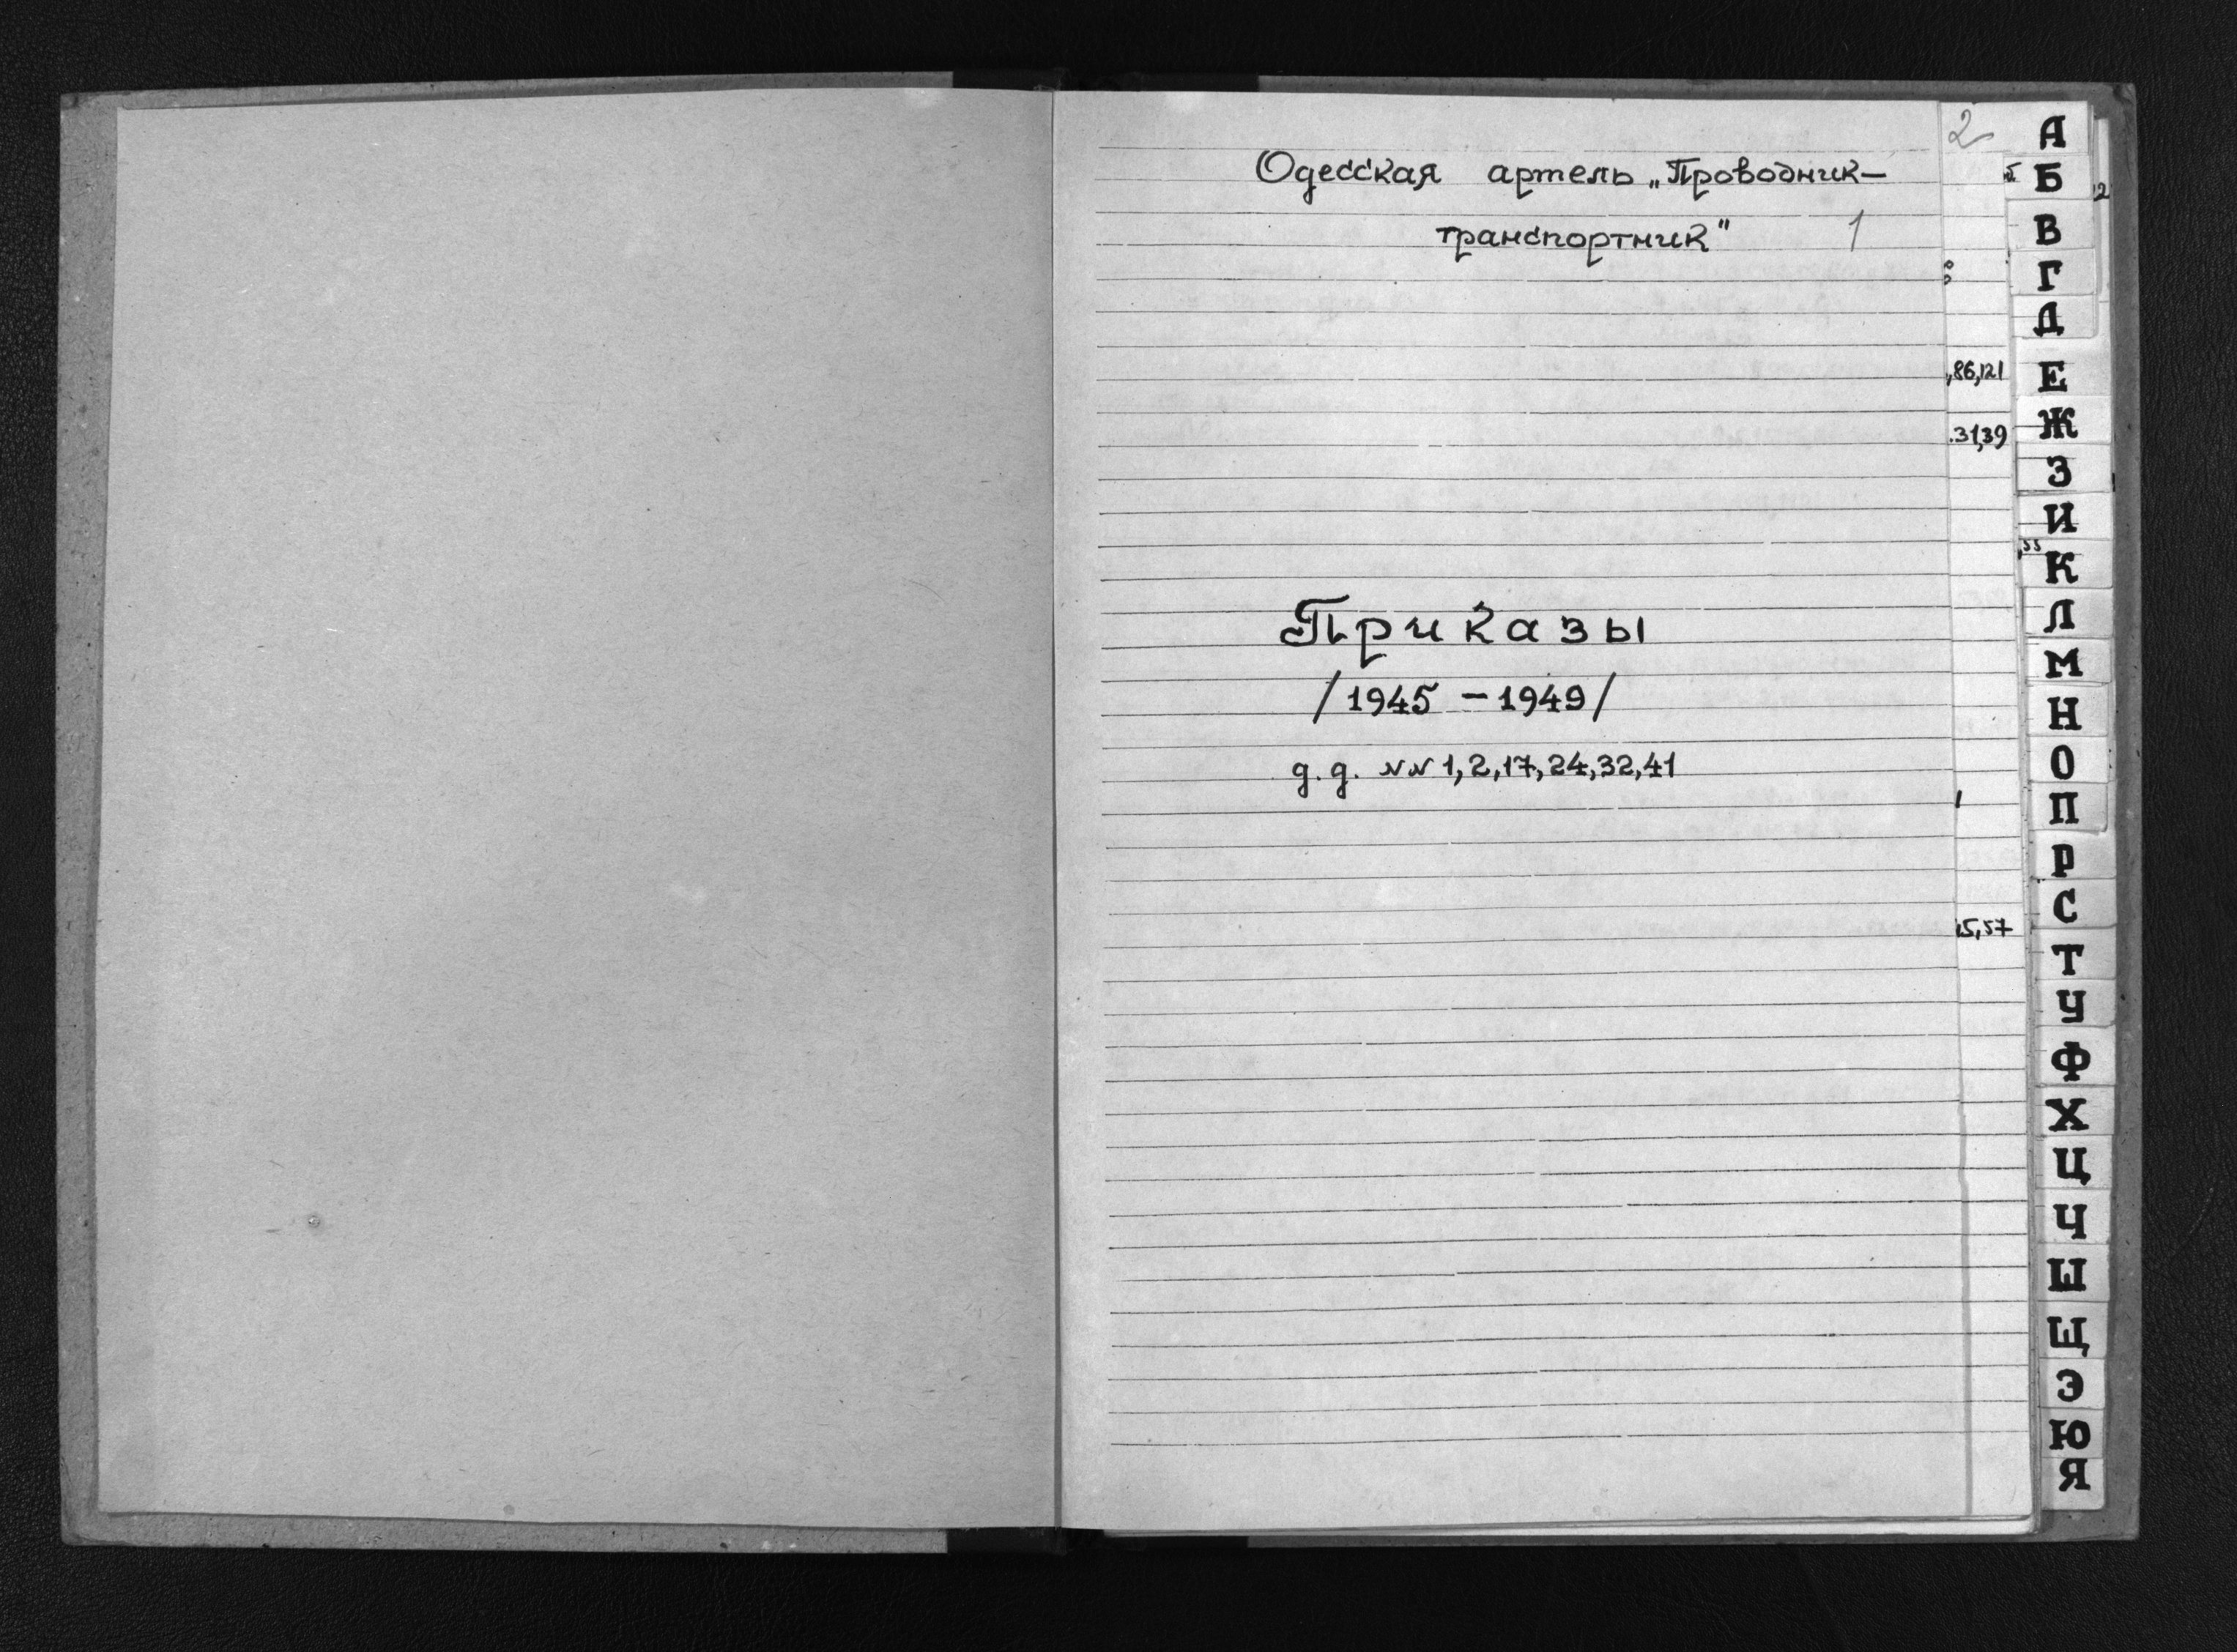 2
Одесская артель „Проводник-
транспортник" 1
Приказы
/1945 - 1949/
д.д. NN 1,2,17,24,32,41
,86,121
31,39
5,57
А
Б
12
В
Г
Д
Е
Ж
З
И
К
Л
М
Н
О
П
Р
С
Т
У
Ф
Х
Ц
Ч
Ш
Щ
Э
Ю
Я